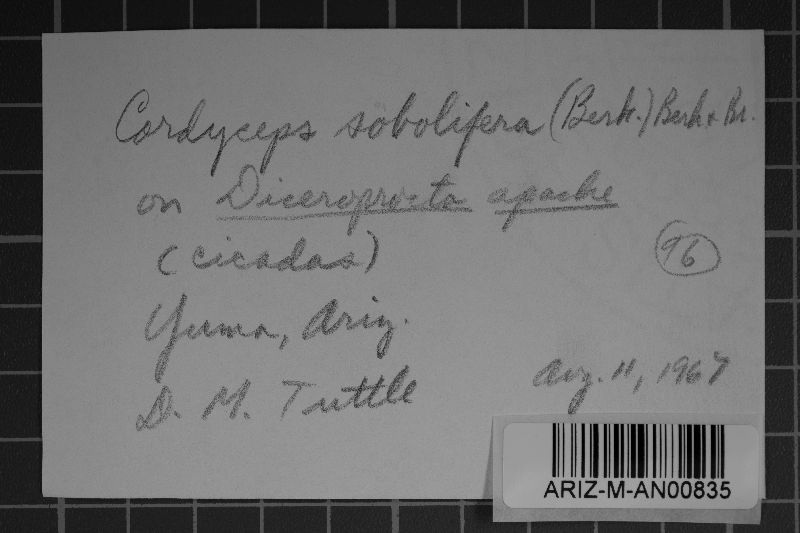 Cordyceps sobolifera (Berk.) Berk & Br.
on Diceroprocta apache
(cicadas)
96
Yuma, Ariz.
D. M. Tuttle
Aug. 11, 1967
ARIZ-M-AN00835